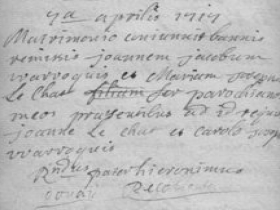 7a aprilis 1717
Matrimonio coniunxit bannis
remissis joannem jacobum
warroquis et Mariam
Le Chat filiam per parochiam
meos praesentibus ad id
joanne Le Chat et Carolo
warroquis
Rndus pater hieronimus
Recolect